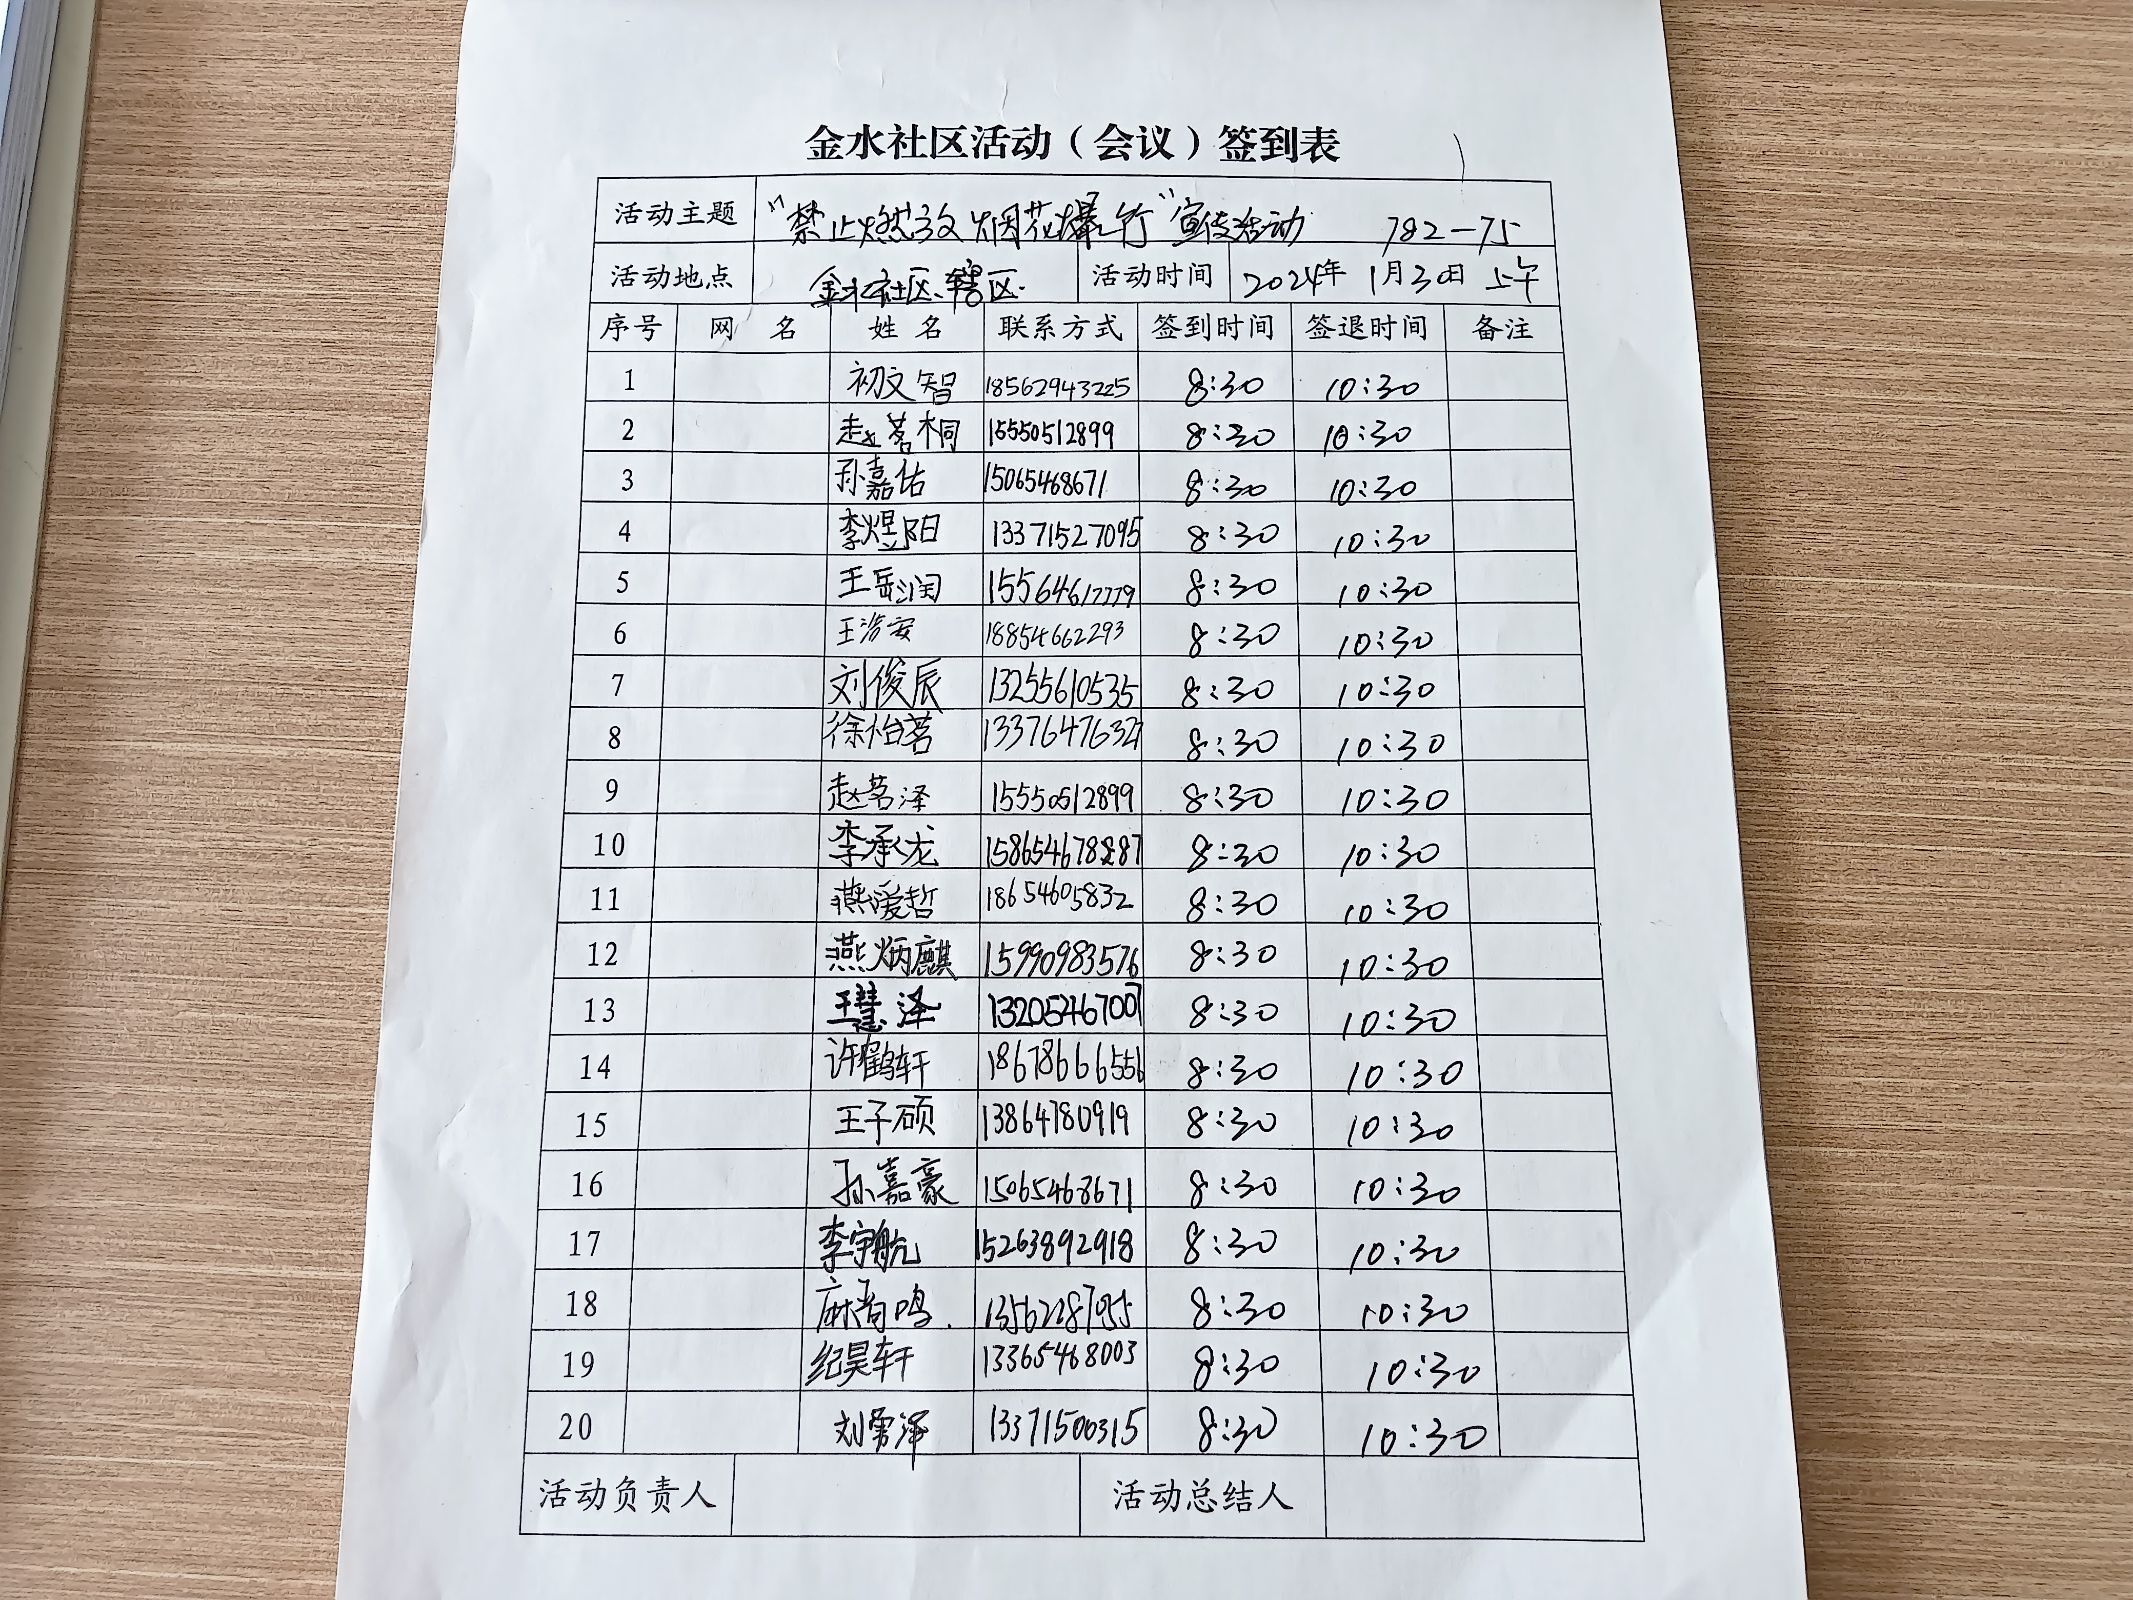 金水社区活动（会议）签到表
活动主题 "禁止燃放烟花爆竹"宣传活动 782-75
活动地点 金水社区辖区 活动时间 2024年1月30日 上午
序号 网名 姓名 联系方式 签到时间 签退时间 备注
1 初文智 18562943225 8:30 10:30
2 赵茗桐 15550512899 8:30 10:30
3 孙嘉佑 15065468671 8:30 10:30
4 李煜阳 13371527095 8:30 10:30
5 王岳润 15564617779 8:30 10:30
6 王浩安 18854662293 8:30 10:30
7 刘俊辰 13255610535 8:30 10:30
8 徐怡茗 8:30 10:30
9 赵茗泽 15550512899 8:30 10:30
10 李承龙 8:30 10:30
11 燕湲哲 18654605832 8:30 10:30
12 燕炳麒 15990983576 8:30 10:30
13 王慧泽 13205467007 8:30 10:30
14 许鹤轩 18678666556 8:30 10:30
15 王子硕 13864780919 8:30 10:30
16 孙嘉豪 15065468671 8:30 10:30
17 李宇航 15263892918 8:30 10:30
18 8:30 10:30
19 纪昊轩 13365468003 8:30 10:30
20 13371500315 8:30 10:30
活动负责人 活动总结人